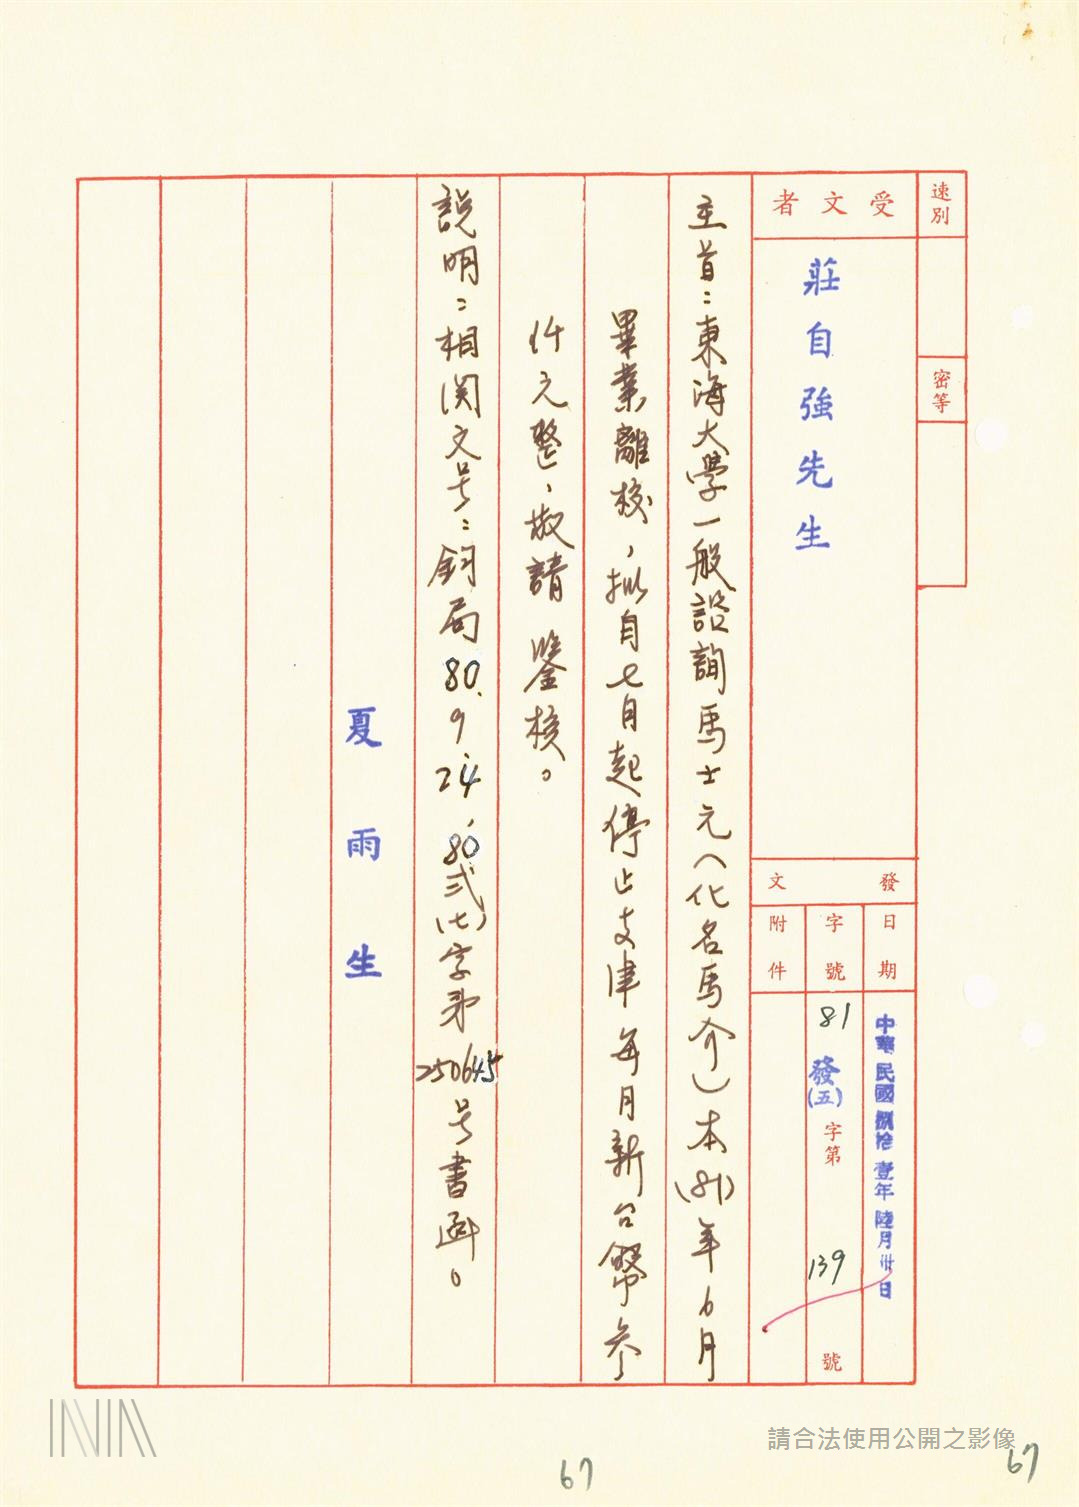 速別
密等
受文者
莊自強先生
發文
日期
中華民國捌拾壹年陸月卅日
字號
81發(五)字第139號
附件
主旨：東海大學一般諮詢馬士元(化名馬介)本(81)年6月
畢業離校，擬自七月起停止支津每月新台幣参
仟元整，敬請 鑒核。
説明：相関文号：鈞局80.9.24.80弍(七)字第250645号書函。
夏雨生
請合法使用公開之影像
67
67